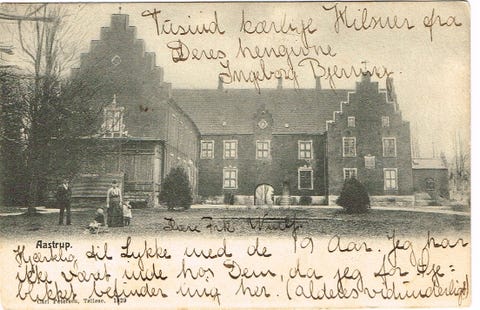 Tusind kærlige Hilsner fra
Deres hengivne
Ingeborg Bjerring.
Frk.
Aastrup.
Hjertelig til Lykke med de 19 Aar. Jeg har
ikke vært ude hos Dem, da jeg for Øje-
blikket befinder mig her. (aldeles vidunderligt)
Carl Petersen, Tølløse. 1329